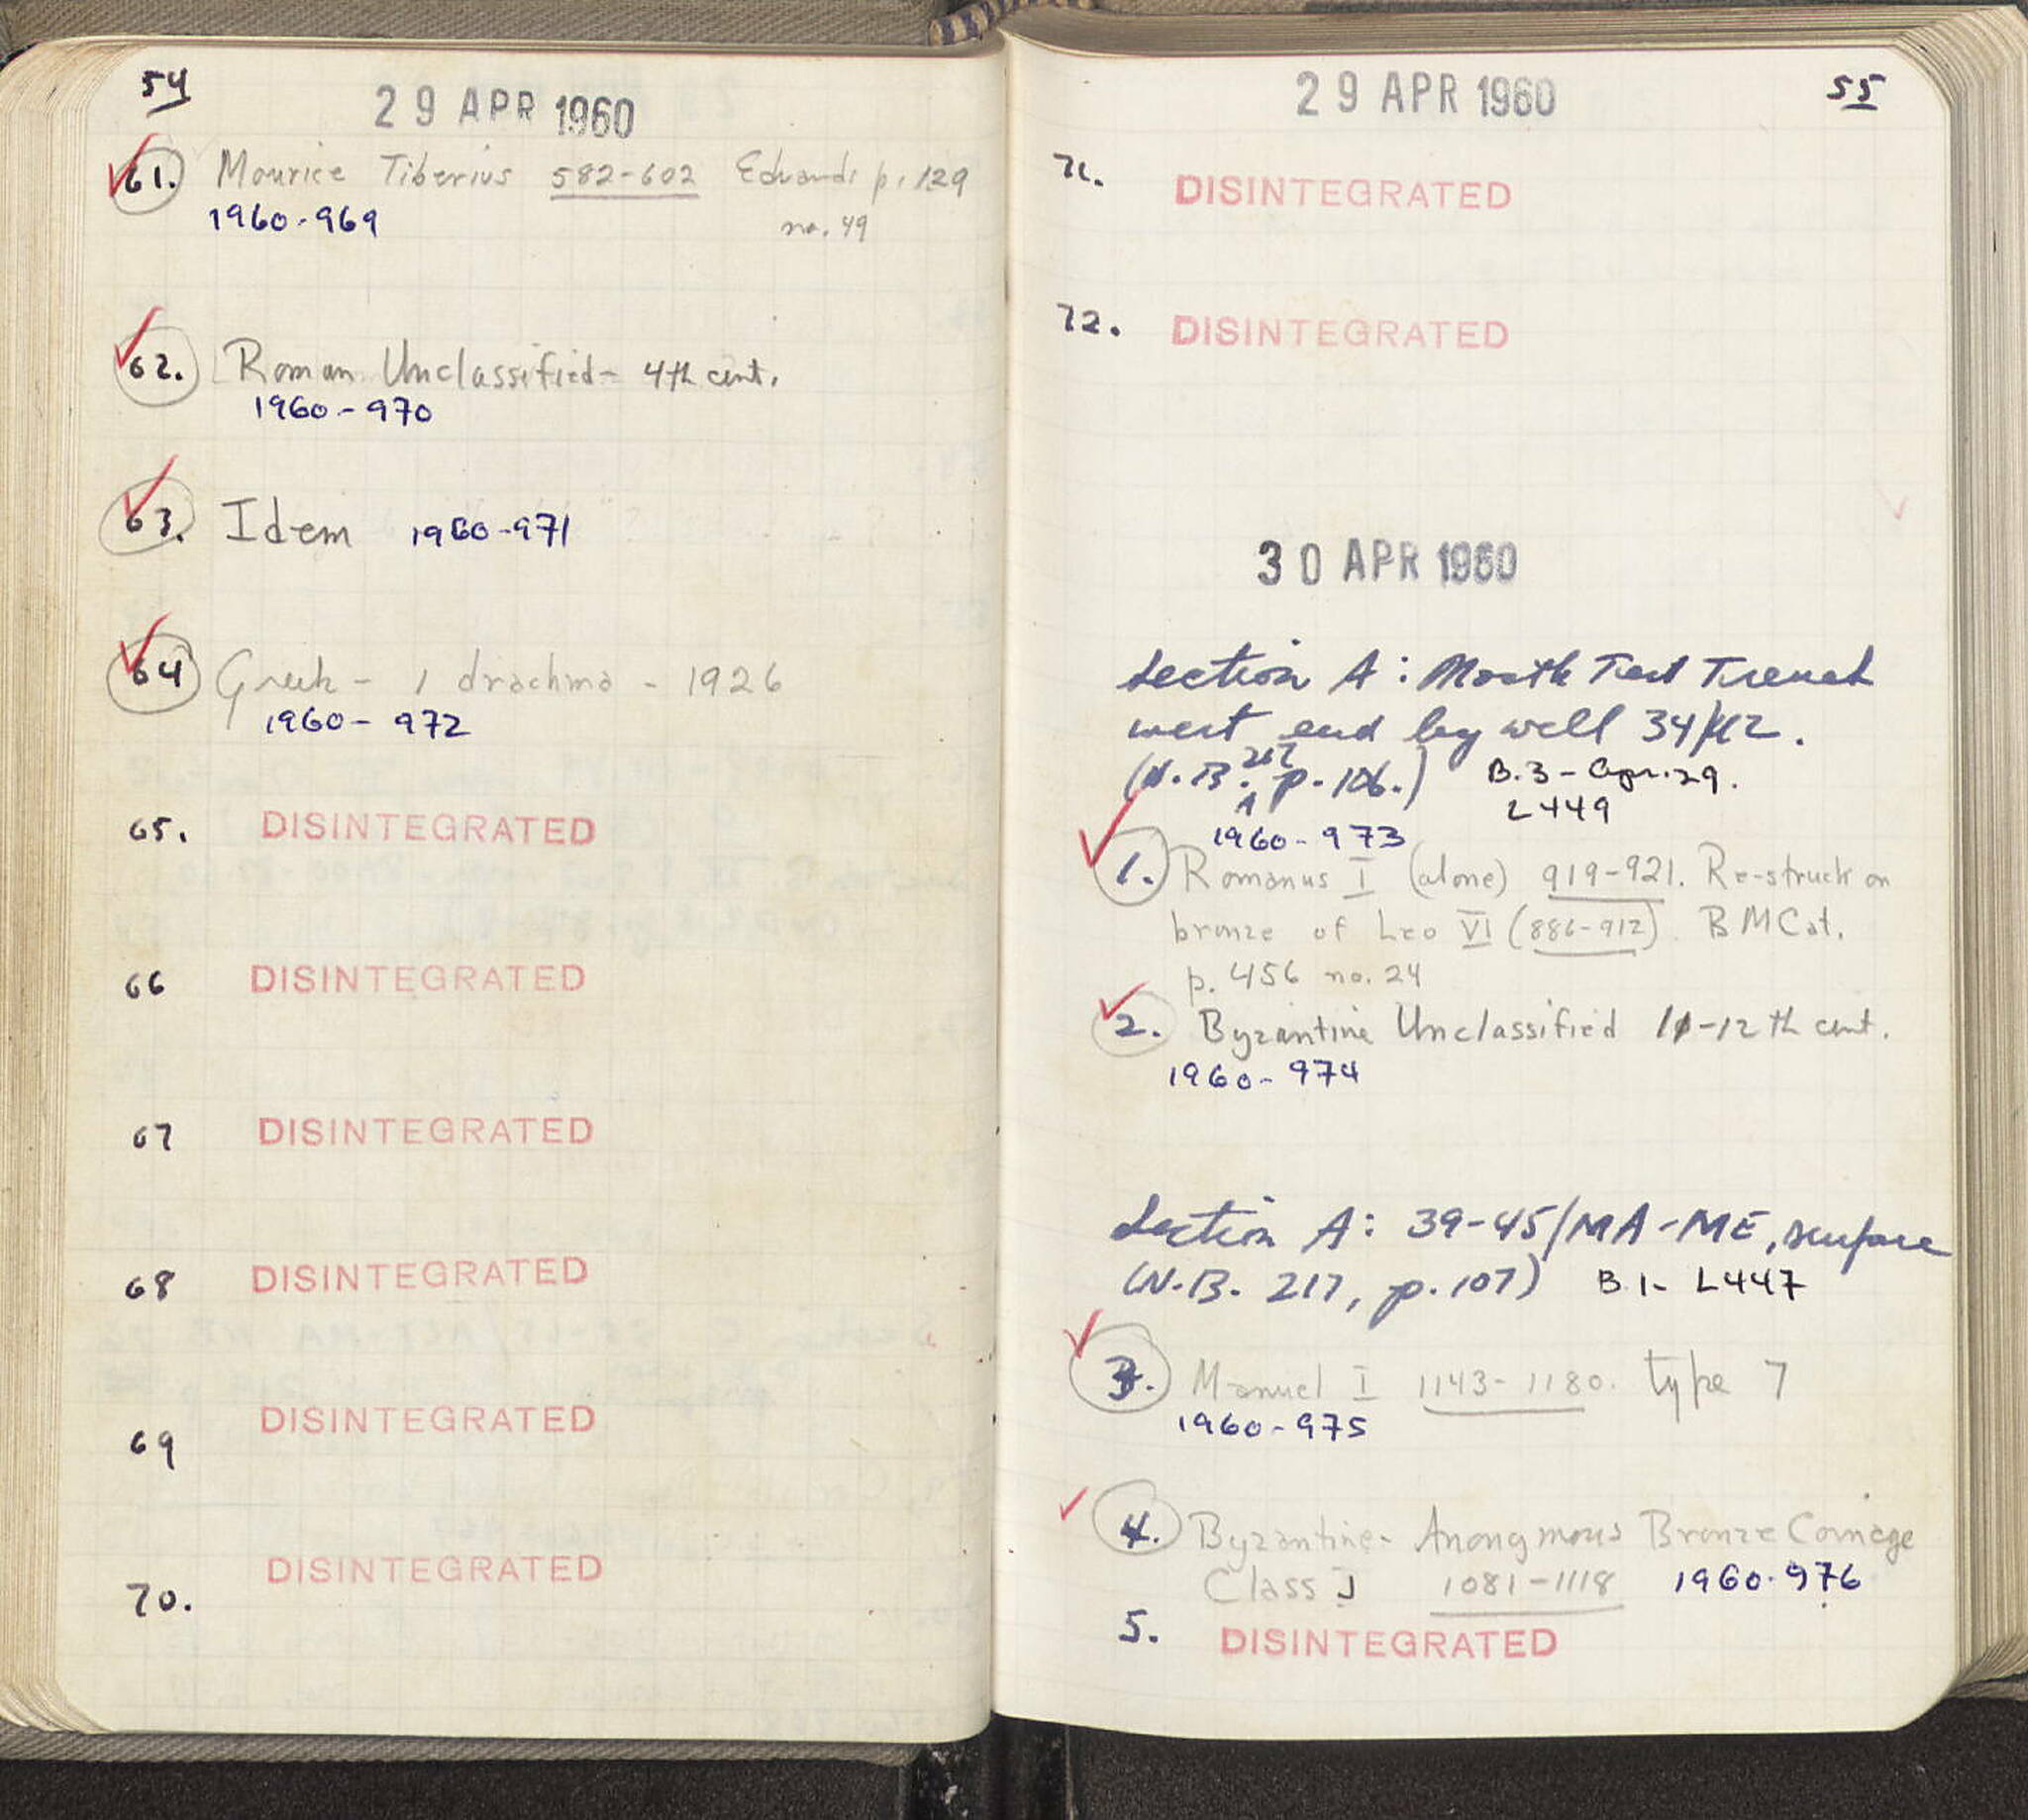 54
29 APR 1960
61. Maurice Tiberius 582-602 Edwards p. 129
1960-969 no. 49
62. Roman Unclassified - 4th cent.
1960-970
63. Idem 1960-971
64 Greek - 1 drachma - 1926
1960-972
65. DISINTEGRATED
66 DISINTEGRATED
67 DISINTEGRATED
68 DISINTEGRATED
69 DISINTEGRATED
70. DISINTEGRATED
29 APR 1960 55
71. DISINTEGRATED
72. DISINTEGRATED
30 APR 1960
Section A: North Test Trench
west end by well 34/
(N.B. 217 p. 106.) B.3 - Apr. 29.
L449
1960-973
1. Romanus I (alone) 919-921. Re-struck on
bronze of Leo VI (886-912). BMCat.
p. 456 no. 24
2. Byzantine Unclassified 11-12th cent.
1960-974
Section A: 39-45/MA-ME, surface
(N.B. 217, p. 107) B.1- L447
3. Manuel I 1143-1180. type 7
1960-975
4. Byzantine- Anonymous Bronze Coinage
Class J 1081-1118 1960-976
5. DISINTEGRATED